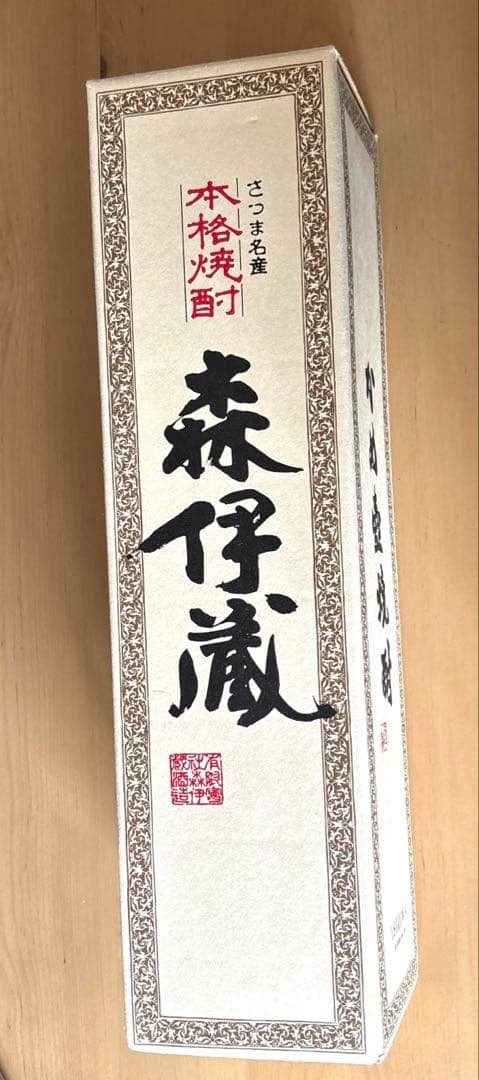 さつま名産
本格焼酎
森伊蔵
有限會
社森伊
蔵酒造
かめ壺焼酎